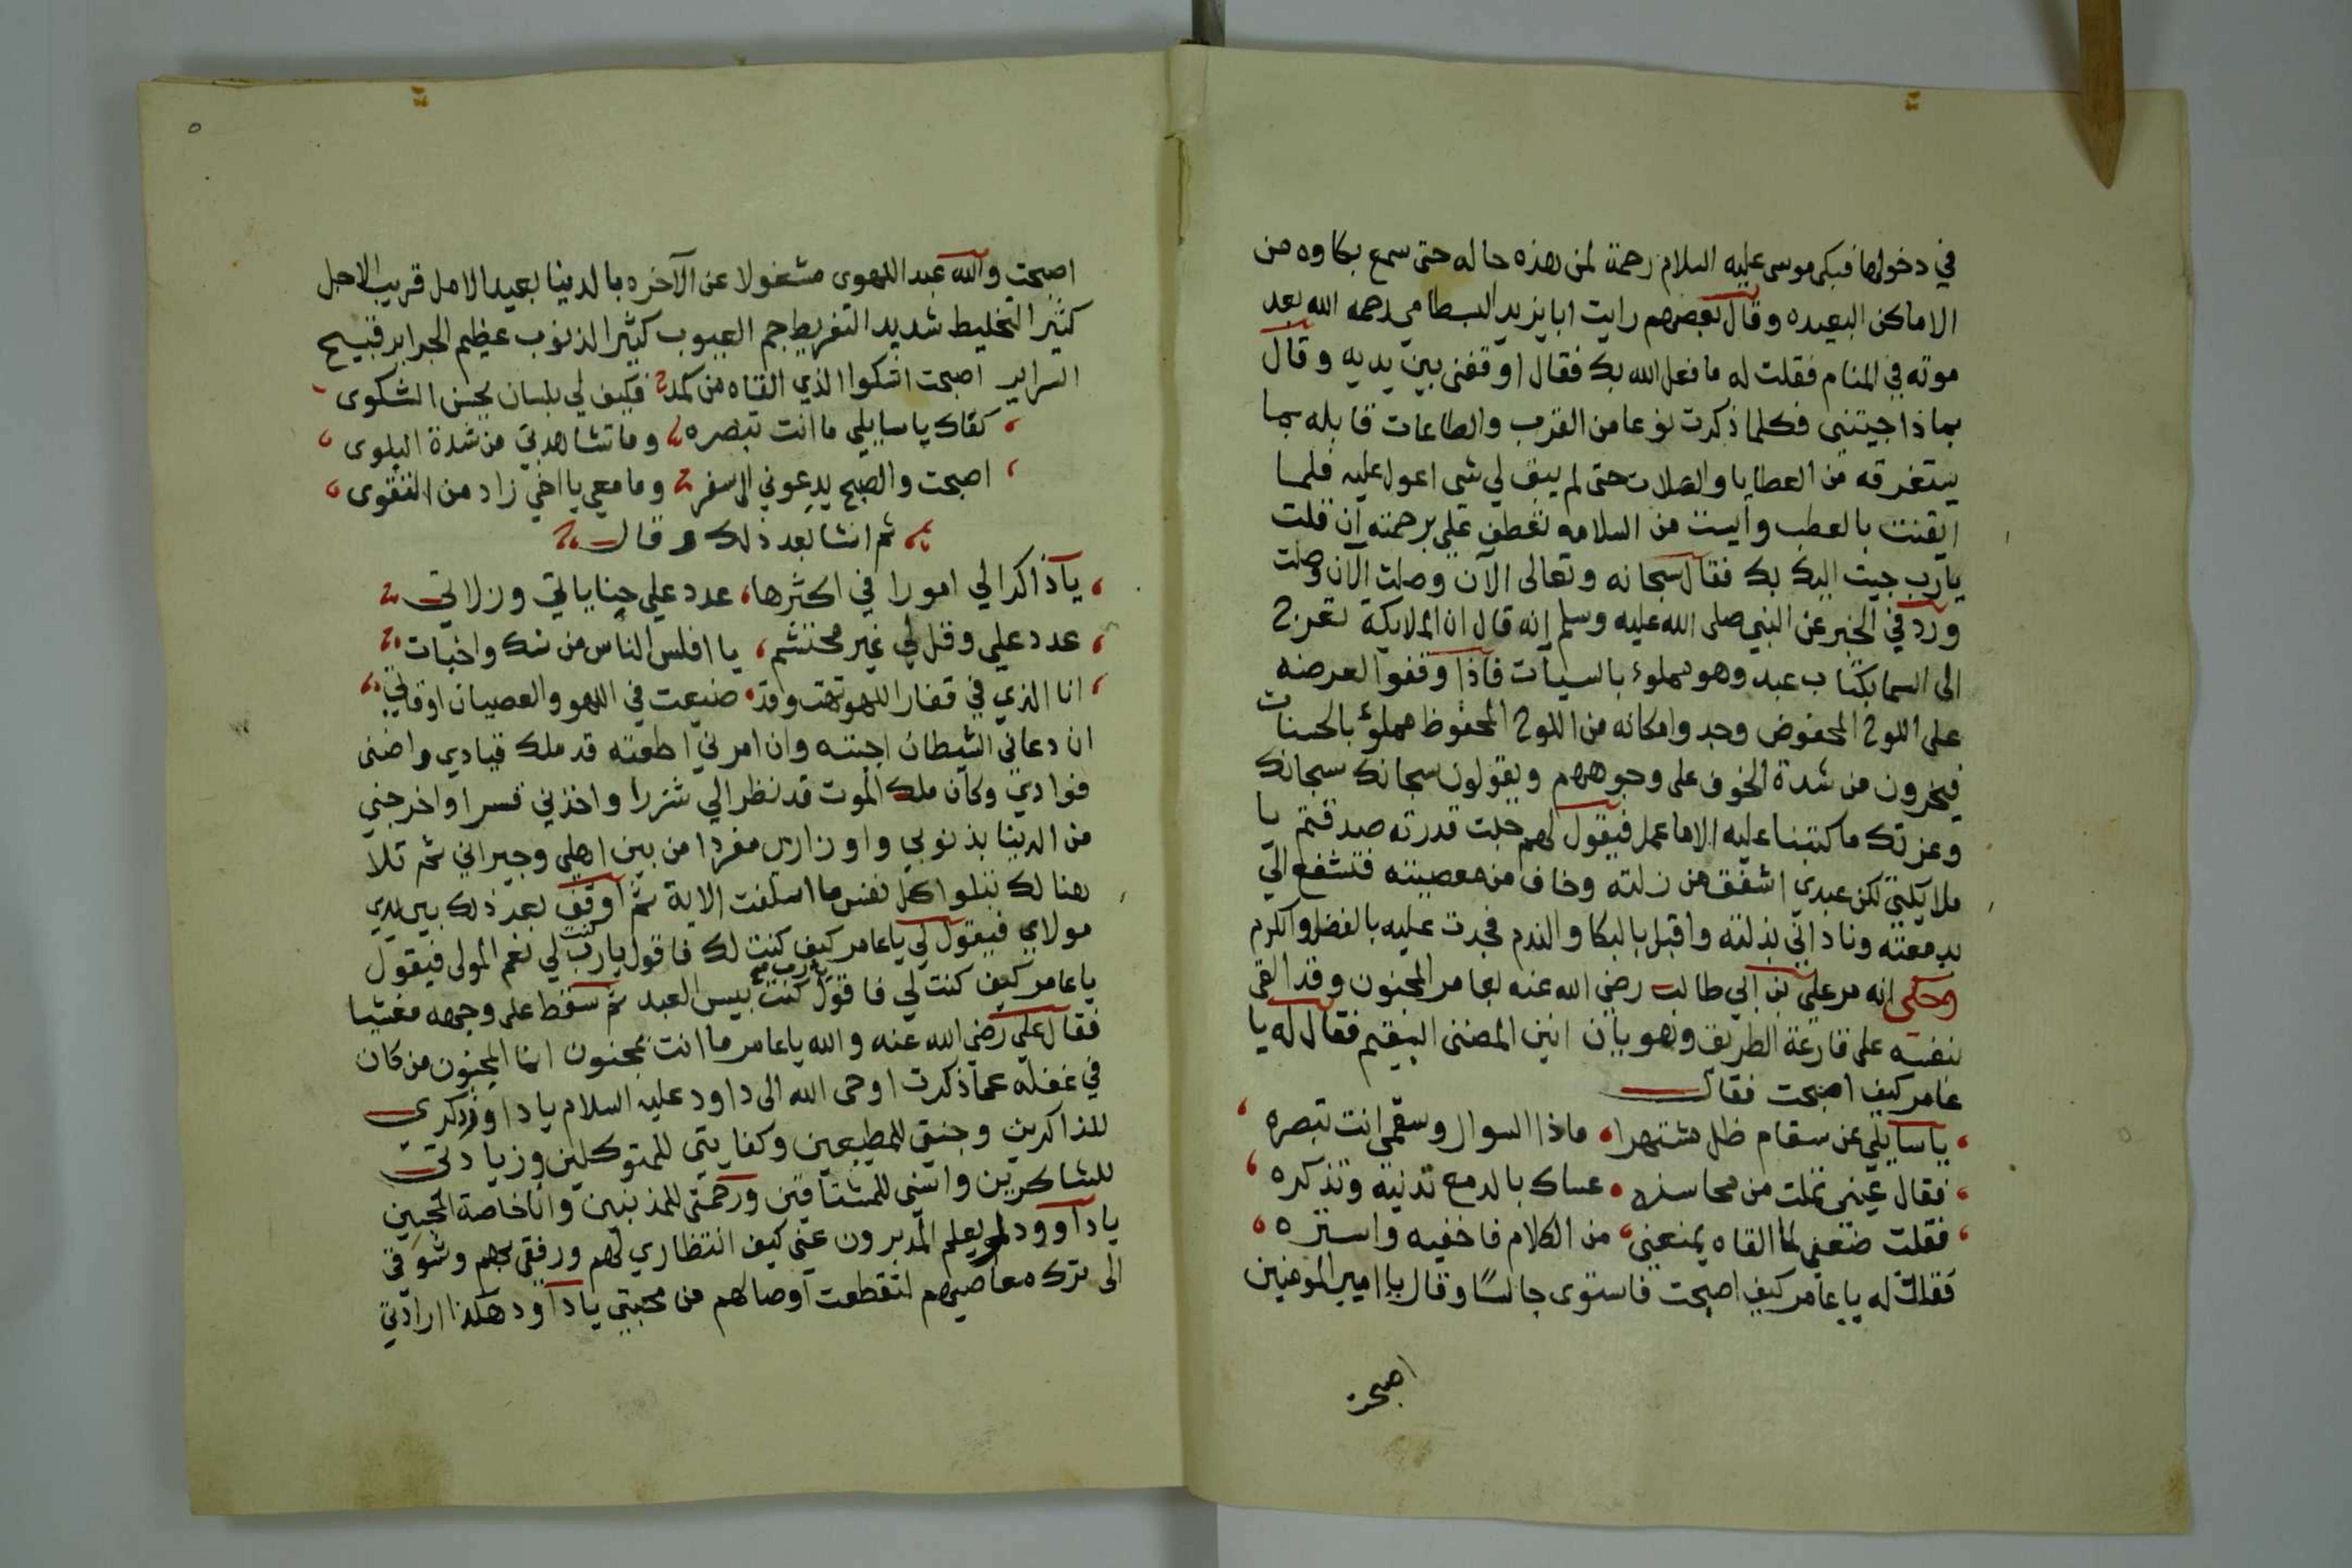 في دخولها فبكى موسى عليه السلام رحمة لمن هذه حاله حتى سمع بكاوه من
الاماكن البعيده وقال بعضهم رايت ابا يزيد البسطامي رحمه الله بعد
موته في المنام فقلت له ما فعل الله بك فقال اوقفني بين يديه وقال
بماذا جيتني فكلما ذكرت نوعا من القرب والطاعات قابله بما
يستغرقه من العطايا والصلات حتى لم يبق لي شي اعول عليه فلما
ايقنت بالعطب وأيست من السلامه تعطف علي برحمته ان قلت
يارب جيت اليك بك فقال سبحانه وتعالى الآن وصلت الآن وصلت
ورد في الخبر عن النبي صلى الله عليه وسلم إنه قال ان الملايكة تعرج
الى السما بكتاب عبد وهو مملوء بالسيات فاذا وقفوا لعرضه
على اللوح المحفوض وجدوا مكانه من اللوح المحفوظ مملؤ بالحسنات
فيخرون من شدة الخوف على وجوههم ويقولون سبحانك سبحانك
وعزتك ما كتبنا عليه الا ما عمل فيقول لهم جلت قدرته صدقتم يا
ملايكتي لكن عبدي اشفق من زلته وخاف من معصيته فتشفع الي
بدمعته وناداني بذلته واقبل بالبكا والندم فجدت عليه بالفضل والكرم
وحكى انه مر علي بن ابي طالب رضي الله عنه بعامر المجنون وقد القى
نفسه على قارعة الطريق وهو يأن انين المضنى السقيم فقال له يا
عامر كيف اصبحت فقال
يا سايلي عن سقام ظل مشتهرا ماذا السوال وسقمي انت تبصره
فقال عيني تملت من محاسنه عساك بالدمع تدنيه وتذكره
فقلت ضعفي لما القاه يمنعني من الكلام فاخفيه واستره
فقلت له يا عامر كيف اصبحت فاستوى جالسًا وقال يا امير المومنين
اصبحت
٥
اصبحت والله عبد اللهوى مشغولا عن الآخره بالدنيا بعيد الامل قريب الاجل
كثير التخليط شديد التفريط جم العيوب كثير الذنوب عظيم الجراير قبيح
السراير اصبحت اشكوا الذي القاه من كمد فكيف لي بلسان يحسن الشكوى
كفاك يا سايلي ما انت تبصره وما تشاهدني من شدة البلوى
اصبحت والصبح يدعوني الى سفر وما معي يا اخي زاد من التقوى
ثم انشا بعد ذلك وقال
يا ذاكرا لي امورا في اكثرها عدد علي جناياتي وزلاتي
عدد علي وقل لي غير محتشم يا افلس الناس من نسك واخبات
انا الذي في قفار اللهو تهت وقد ضيعت في اللهو والعصيان اوقاتي
ان دعاني الشيطان اجبته وان امرني اطعته قد ملك قيادي واضنى
فوادي وكأن ملك الموت قد نظر الي شزرا واخذني قسرا واخرجني
من الدينا بذنوبي واوزاري مفردا من بين اهلي وجيراني ثم تلا
هنالك تبلوا كل نفس ما اسلفت الاية ثم اوقف بعد ذلك بين يدي
مولاي فيقول لي يا عامر كيف كنت لك فاقول يارب كنت لي نعم المولى فيقول
يا عامر كيف كنت لي فاقول يارب صح كنت بيس العبد ثم سقط على وجهه مغشيا
فقال علي رضي الله عنه والله يا عامر ما انت بمجنون انما المجنون من كان
في غفله عما ذكرت اوحى الله الى داود عليه السلام يا داوود ذكري
للذاكرين وجنتي للمطيعين وكفايتي للمتوكلين وزيادتي
للشاكرين وانسي للمشتاقين ورحمتي للمذنبين وانا خاصة للمحبين
يا داوود لو يعلم المدبرون عني كيف انتظاري لهم ورفقي بهم وشوقي
الى ترك معاصيهم لتقطعت أوصالهم من محبتي يا داوود هكذا ارادتي